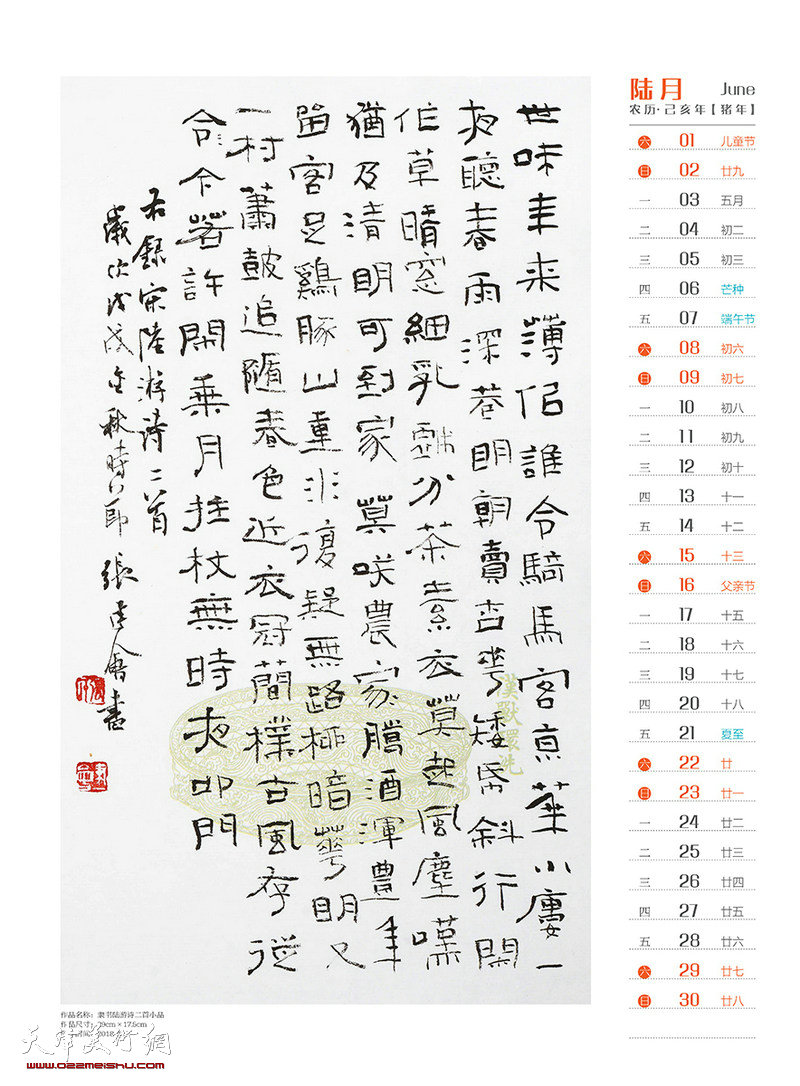 世味年来薄侣誰令騎馬客京華小廔一
夜聽春雨深巷明朝賣杏華矮帋斜行閑
作草晴窓細乳戲分茶素衣莫起風塵嘆
猶及清明可到家莫咲農家臈酒渾豊年
留客足鷄豚山重水復疑無路柳暗華明又
一村蕭鼓追隨春色近衣冠簡樸古風存從
今若許閑乘月拄杖無時夜叩門
右録宋陸游詩二首
歲次戊戌金秋時節 張書
陆月 June
农历·己亥年【猪年】
六 01 儿童节
日 02 廿九
一 03 五月
二 04 初二
三 05 初三
四 06 芒种
五 07 端午节
六 08 初六
日 09 初七
一 10 初八
二 11 初九
三 12 初十
四 13 十一
五 14 十二
六 15 十三
日 16 父亲节
一 17 十五
二 18 十六
三 19 十七
四 20 十八
五 21 夏至
六 22 廿
日 23 廿一
一 24 廿二
二 25 廿三
三 26 廿四
四 27 廿五
五 28 廿六
六 29 廿七
日 30 廿八
作品名称：隶书陆游诗二首小品
作品尺寸：79cm×17.5cm
2018
天津美術網
www.022meishu.com